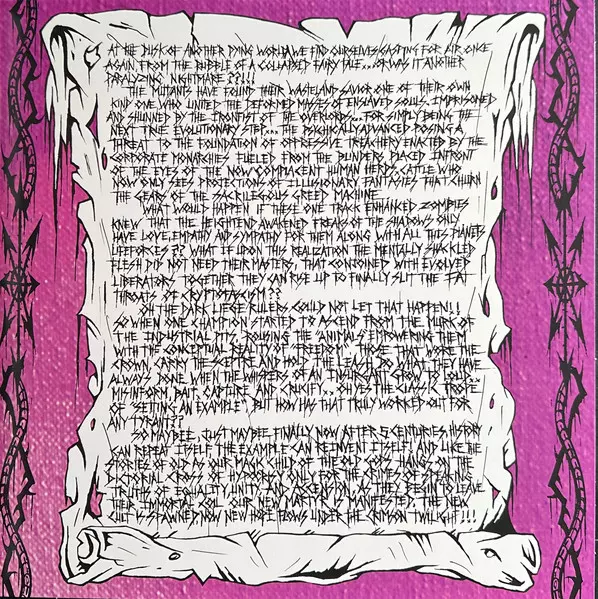 AT THE DUSK OF ANOTHER DYING WORLD, WE FIND OURSELVES GASPING FOR AIR ONCE
AGAIN, FROM THE RUBBLE OF A COLLAPSED FAIRY TALE... OR WAS IT ANOTHER
PARALYZING NIGHTMARE??!!!
THE MUTANTS HAVE FOUND THEIR WASTELAND SAVIOR ONE OF THEIR OWN
KIND ONE WHO UNITED THE DEFORMED MASSES OF ENSLAVED SOULS. IMPRISONED
AND SHUNNED BY THE IRONFIST OF THE OVERLORDS... FOR SIMPLY BEING THE
NEXT TRUE EVOLUTIONARY STEP... THE PSCHICALLY ADVANCED POSING A
THREAT TO THE FOUNDATION OF OPPRESSIVE TREACHERY ENACTED BY THE
CORPORATE MONARCHIES FUELED FROM THE BLINDERS PLACED INFRONT
OF THE EYES OF THE NOW COMPLACENT HUMAN HERDS. CATTLE WHO
NOW ONLY SEES PROJECTIONS OF ILLUSIONARY FANTASIES THAT CHURN
THE GEARS OF THE SACRILEGIOUS GREED MACHINE
WHAT WOULD HAPPEN IF THESE ONE TRACK ENHANCED ZOMBIES
KNEW THAT THE HEIGHTEND AWAKENED FREAKS OF THE SHADOWS ONLY
HAVE LOVE, EMPATHY AND SYMPATHY FOR THEM ALONG WITH ALL THIS PLANETS
LIFEFORCES?? WHAT IF UPON THIS REALIZATION THE MENTALLY SHACKLED
FLESH DID NOT NEED THEIR MASTERS, THAT CONJOINED WITH EVOLVED
LIBERATORS TOGETHER THEY CAN RISE UP TO FINALLY SLIT THE FAT
THROATS OF CRYPTOFASCISM??
OH THE DARK LIEGE RULERS COULD NOT LET THAT HAPPEN!!
SO WHEN ONE CHAMPION STARTED TO ASCEND FROM THE MURK OF
THE INDUSTRIAL PITS, ROUSING THE "ANIMALS" EMPOWERING THEM
WITH THE CONCEPTUAL REALITY OF "FREEDOM". THOSE THAT WORE THE
CROWN, CARRY THE SCEPTRE AND HOLD THE LEASH DO WHAT THEY HAVE
ALWAYS DONE WHEN THE WHISPERS OF AN INSURGANT GROW TO LOUD...
MISINFORM, BAIT, CAPTURE AND CRUCIFY... OH YES THE CLASSIC TROPE
OF "SETTING AN EXAMPLE", BUT HOW HAS THAT TRULY WORKED OUT FOR
ANY TYRANT??
SO MAYBEE, JUST MAYBEE, FINALLY NOW AFTER 5 CENTURIES, HISTORY
CAN REPEAT ITSELF, THE EXAMPLE CAN REINVENT ITSELF! AND LIKE THE
STORIES OF OLD AS OUR MAGIK CHILD OF THE OLD GODS HANGS ON THE
CROSS OF HYPOCRISY ONLY FOR THE CRIMES OF SPEAKING
TRUTHS OF EQUALITY, UNITY, AND ASCENSION, AS THEY BEGIN TO LEAVE
THEIR IMMORTAL COIL OUR NEW MARTYR IS MANIFESTED, THE NEW
CULT IS SPAWNED, NOW NEW HOPE UNDER THE CRIMSON TWILIGHT!!!